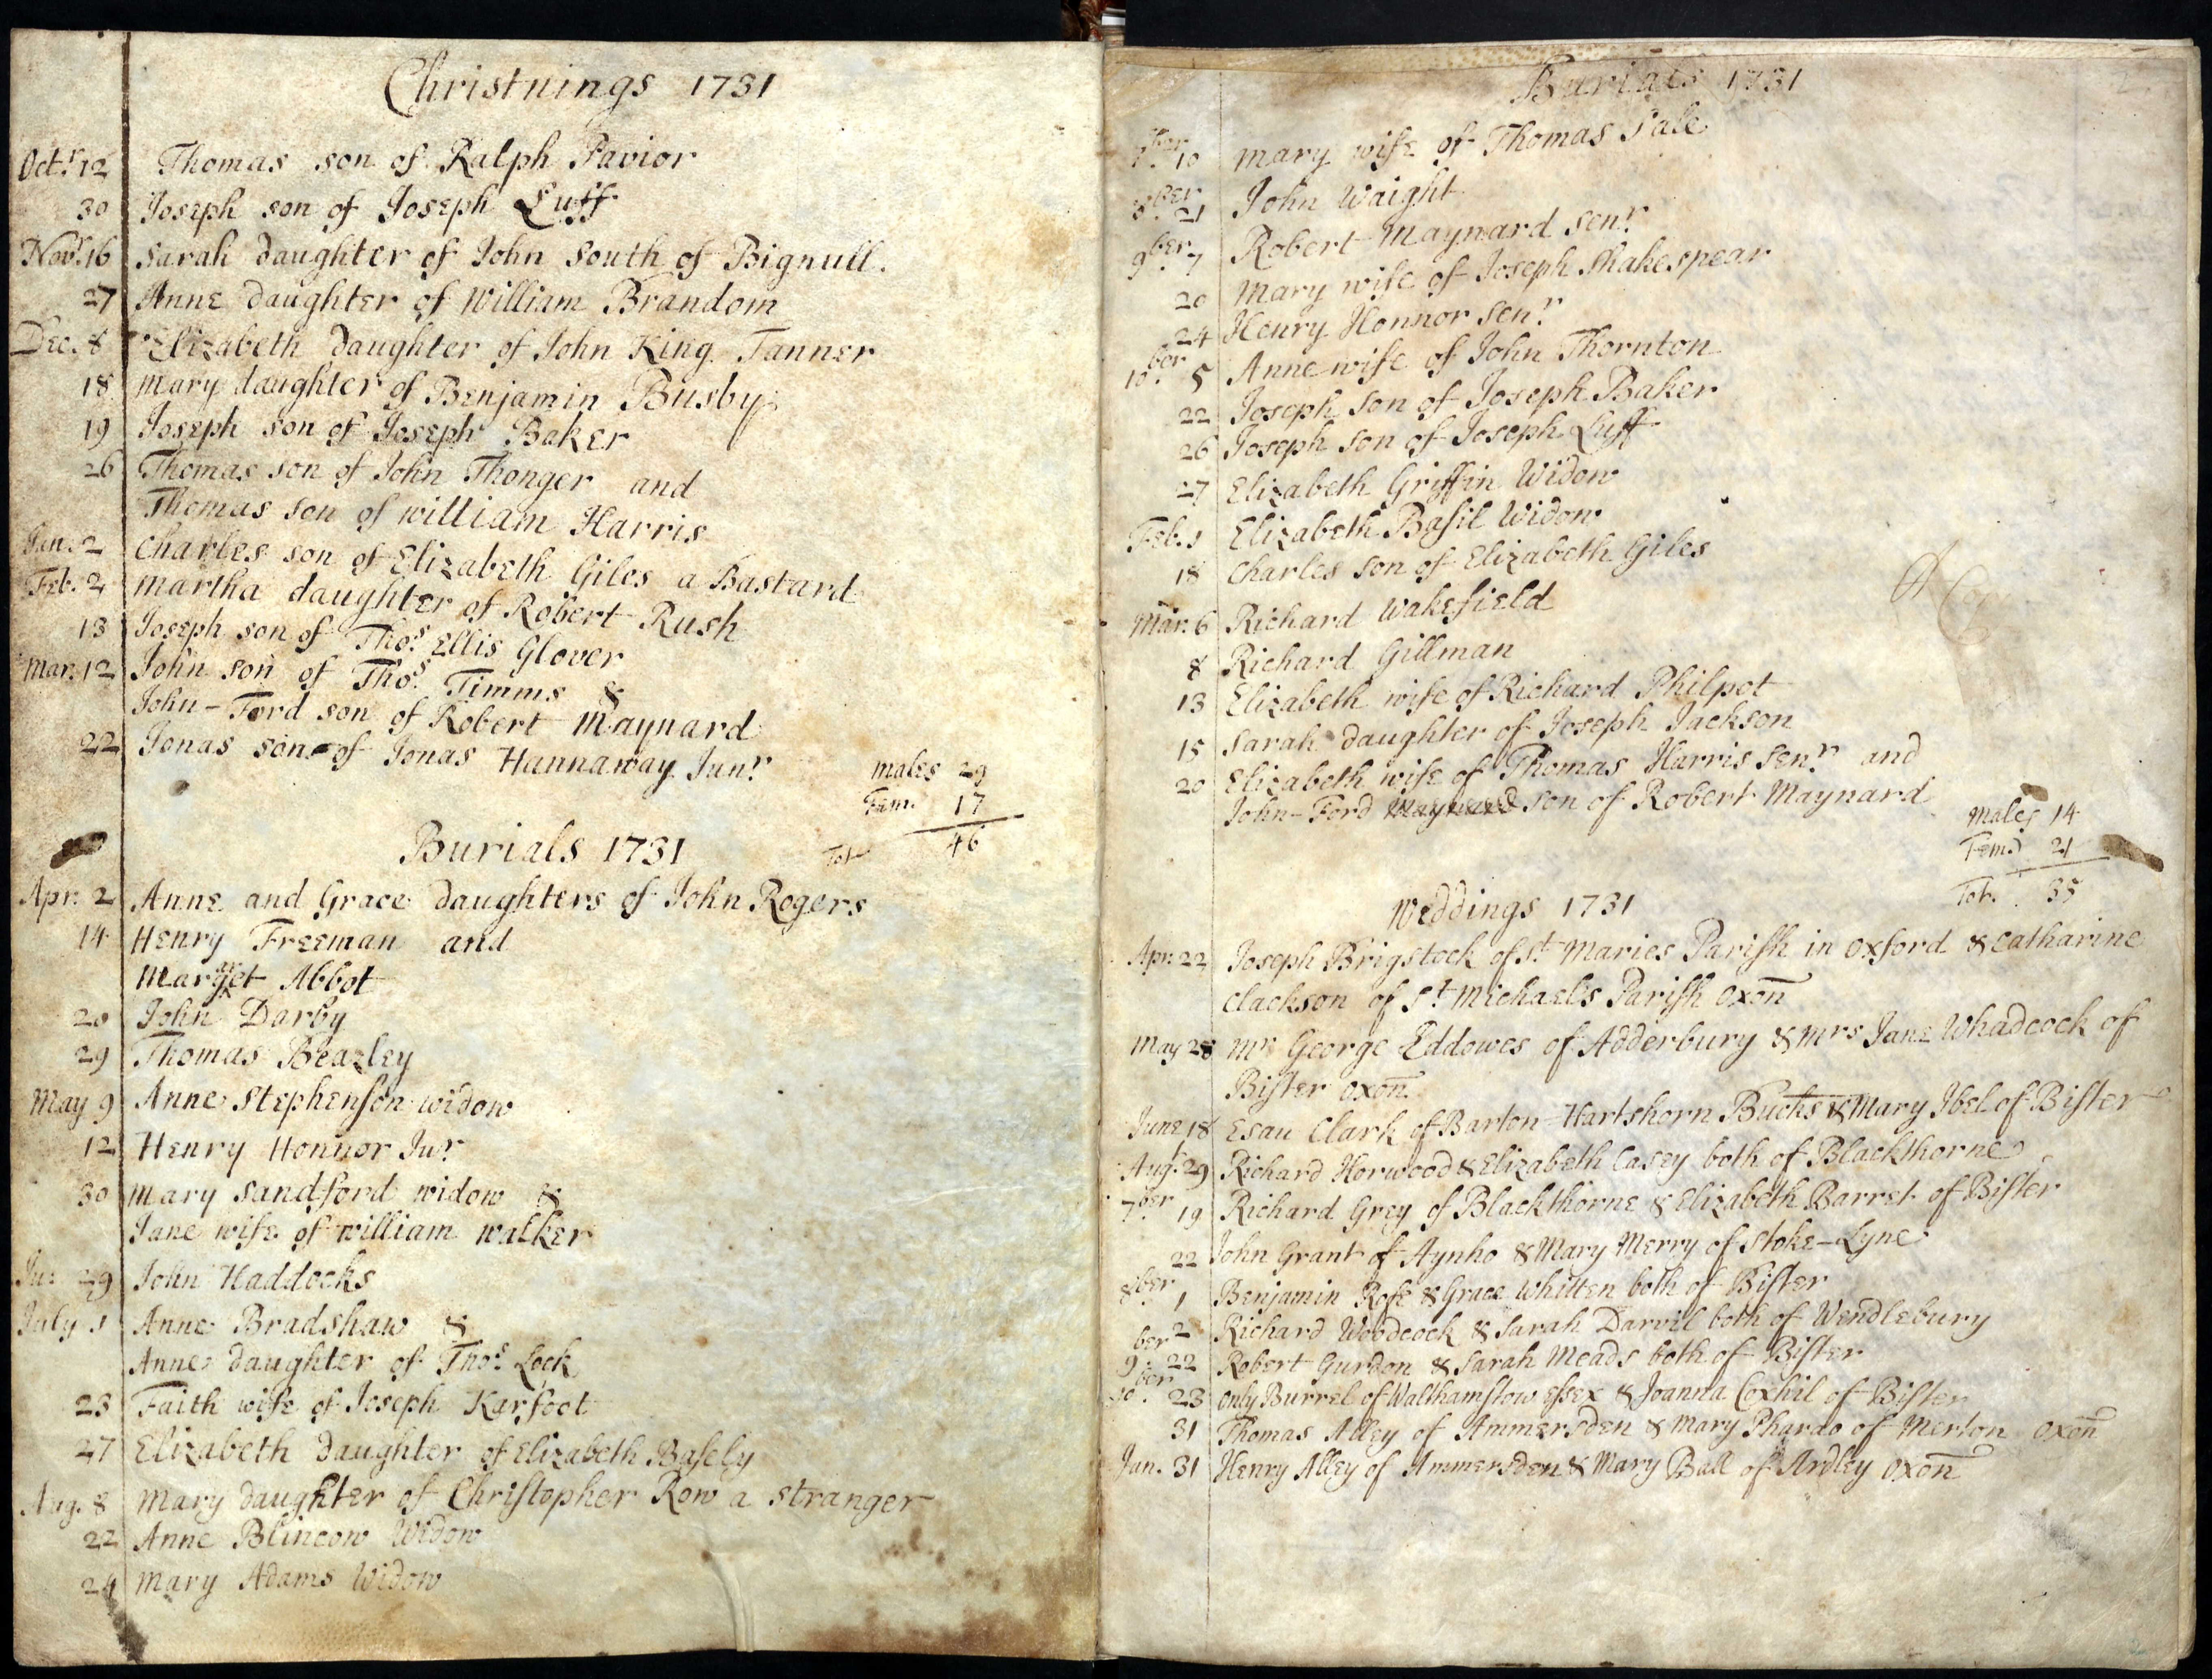 Christnings 1731
Octr. 12 Thomas son of Ralph Pavior
30 Joseph son of Joseph Luff
Novr. 16 Sarah daughter of John South of Bignull.
27 Anne daughter of William Brandom
Dec. 8 Elizabeth daughter of John King Tanner
18 Mary daughter of Benjamin Busby
19 Joseph son of Joseph Baker
26 Thomas son of John Thonger and
Thomas son of William Harris
Jan. 2 Charles son of Elizabeth Giles a Bastard
Feb. 2 Martha daughter of Robert Rush
13 Joseph son of Thos. Ellis Glover
Mar. 12 John son of Thos. Timms &
John-Ford son of Robert Maynard
22 Jonas son of Jonas Hannaway Junr.
Males 29
Fem. 17
Tot. 46
Burials 1731
Apr. 2 Anne and Grace daughters of John Rogers
14 Henry Freeman and
Margaret Abbot
20 John Darby
29 Thomas Beazley
May 9 Anne Stephenson widow
12 Henry Honnor Junr.
30 Mary Sandford widow &
Jane wife of William Walker
Ju: 29 John Haddocks
July 1 Anne Bradshaw &
Anne daughter of Thos. Lock
23 Faith wife of Joseph Karfoot
27 Elizabeth daughter of Elizabeth Basely
Aug. 8 Mary daughter of Christopher Row a stranger
22 Anne Blincow Widow
24 Mary Adams Widow
Burials 1731
7ber. 10 Mary wife of Thomas Sale
8ber. 21 John Waight
9ber. 7 Robert Maynard Senr.
20 Mary wife of Joseph Shakespear
24 Henry Honnor Senr.
10ber. 5 Anne wife of John Thornton
22 Joseph son of Joseph Baker
26 Joseph son of Joseph Luff
27 Elizabeth Griffin Widow
Feb. 1 Elizabeth Basil Widow
18 Charles son of Elizabeth Giles
Mar. 6 Richard Wakefield
8 Richard Gillman
13 Elizabeth wife of Richard Philpot
15 Sarah daughter of Joseph Jackson
20 Elizabeth wife of Thomas Harris Senr. and
John-Ford Maynard son of Robert Maynard
Males 14
Fem. 21
Tot. 35
Weddings 1731
Apr. 22 Joseph Brigstock of St. Maries Parish in Oxford & Catharine
Clackson of St. Michael's Parish Oxon
May 28 Mr. George Eddowes of Adderbury & Mrs Jane Whadcock of
Bister Oxon
June 18 Esau Clark of Barton-Hartshorn Bucks & Mary Ibel of Bister
Augt. 29 Richard Horwood & Elizabeth Casey both of Blackthorne
7ber. 19 Richard Grey of Blackthorne & Elizabeth Barret of Bister
22 John Grant of Aynho & Mary Merry of Stoke-Lyne
8ber. 1 Benjamin Rose & Grace Whitten both of Bister
2 Richard Woodcock & Sarah Darvil both of Wendlebury
9ber. 22 Robert Gurdon & Sarah Meads both of Bister
10ber. 23 Only Burrel of Walthamstow Essex & Joanna Coxhil of Bister
31 Thomas Alley of Ammersden & Mary Phardo of Merton Oxon
Jan. 31 Henry Alley of Ammersden & Mary Ball of Ardley Oxon